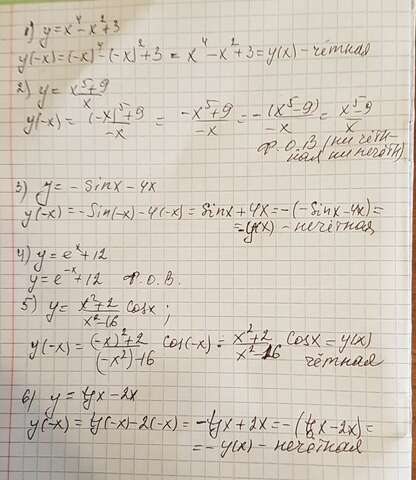 1) y = x⁴ - x² + 3
y(-x) = (-x)⁴ - (-x)² + 3 = x⁴ - x² + 3 = y(x) - чётная
2) y = (x⁵+9)/x
y(-x) = ((-x)⁵+9)/(-x) = (-x⁵+9)/(-x) = (-(x⁵-9))/(-x) = (x⁵-9)/x
Ф.О.В. (ни чёт-
ная ни нечёт)
3) y = - Sinx - 4x
y(-x) = - Sin(-x) - 4(-x) = Sinx + 4x = -(-Sinx - 4x) =
= -y(x) - нечётная
4) y = eˣ + 12
y = e⁻ˣ + 12 Ф.О.В.
5) y = (x²+2)/(x²-16) cosx ;
y(-x) = ((-x)²+2)/((-x²)-16) cos(-x) = (x²+2)/(x²-16) cosx = y(x)
чётная
6) y = tgx - 2x
y(-x) = tg(-x) - 2(-x) = -tgx + 2x = -(tgx - 2x) =
= - y(x) - нечётная